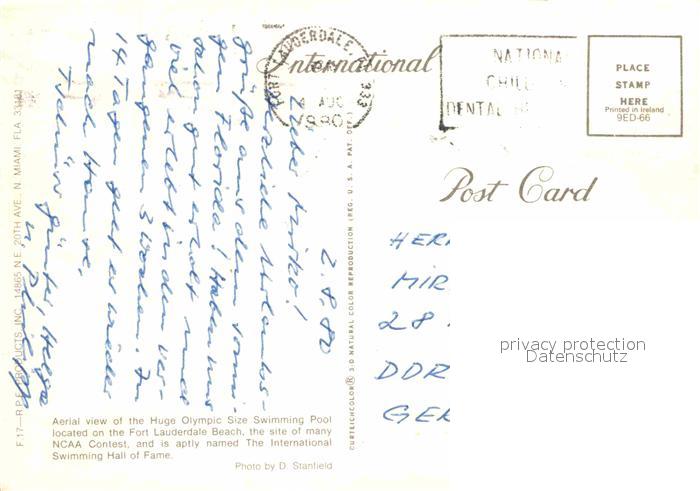 International
FORT LAUDERDALE,
AUG
1980
333
NATIONAL
CHILD
DENTAL
PLACE
STAMP
HERE
Printed in Ireland
9ED-66
Post Card
2.8.80
Lieber Mirko!
Herzliche Urlaubs-
grüße aus dem sonni-
gen Florida! Haben uns
schon gut erholt und
viel erlebt in den ver-
gangenen 3 Wochen. In
14 Tagen geht es wieder
nach Hause.
Tschüß Günter, Helga
u. Philipp
HER
MIR
28.
DDR
GER
privacy protection
Datenschutz
CURTEICHCOLOR® 3-D NATURAL COLOR REPRODUCTION (REG. U.S.A. PAT. OF
F 17—R.P.F. PRODUCTS INC. 14865 N.E. 20TH AVE., N. MIAMI, FLA. 33181
Aerial view of the Huge Olympic Size Swimming Pool
located on the Fort Lauderdale Beach, the site of many
NCAA Contest, and is aptly named The International
Swimming Hall of Fame.
Photo by D. Stanfield